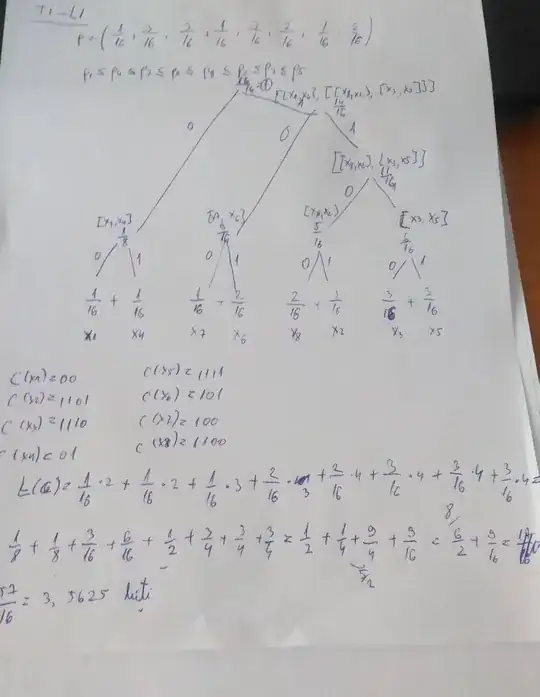 T1-L1
P = ( 1/16, 3/16, 3/16, 1/16, 3/16, 2/16, 1/16, 2/16 )
p1 ≤ p4 ≤ p7 ≤ p6 ≤ p8 ≤ p2 ≤ p3 ≤ p5
14/16
0 1
[[x8,x2], [x3,x5]]
11/16
0 1
[x1,x4] [x7,x6] [x8,x2] [x3, x5]
1/8 5/16 6/16
0 1 0 1 0 1 0 1
1/16 + 1/16 1/16 + 2/16 2/16 + 3/16 3/16 + 3/16
x1 x4 x7 x6 x8 x2 x3 x5
C(x1) = 00 C(x5) = 1111
C(x2) = 1101 C(x6) = 101
C(x3) = 1110 C(x7) = 100
C(x4) = 01 C(x8) = 1100
L(C) = 1/16 · 2 + 1/16 · 2 + 1/16 · 3 + 2/16 · 3 + 2/16 · 4 + 3/16 · 4 + 3/16 · 4 + 3/16 · 4 =
1/8 + 1/8 + 3/16 + 6/16 + 1/2 + 3/4 + 3/4 + 3/4 = 1/2 + 1/4 + 9/4 + 9/16 = 6/2 + 9/16 =
57/16 = 3,5625 biti